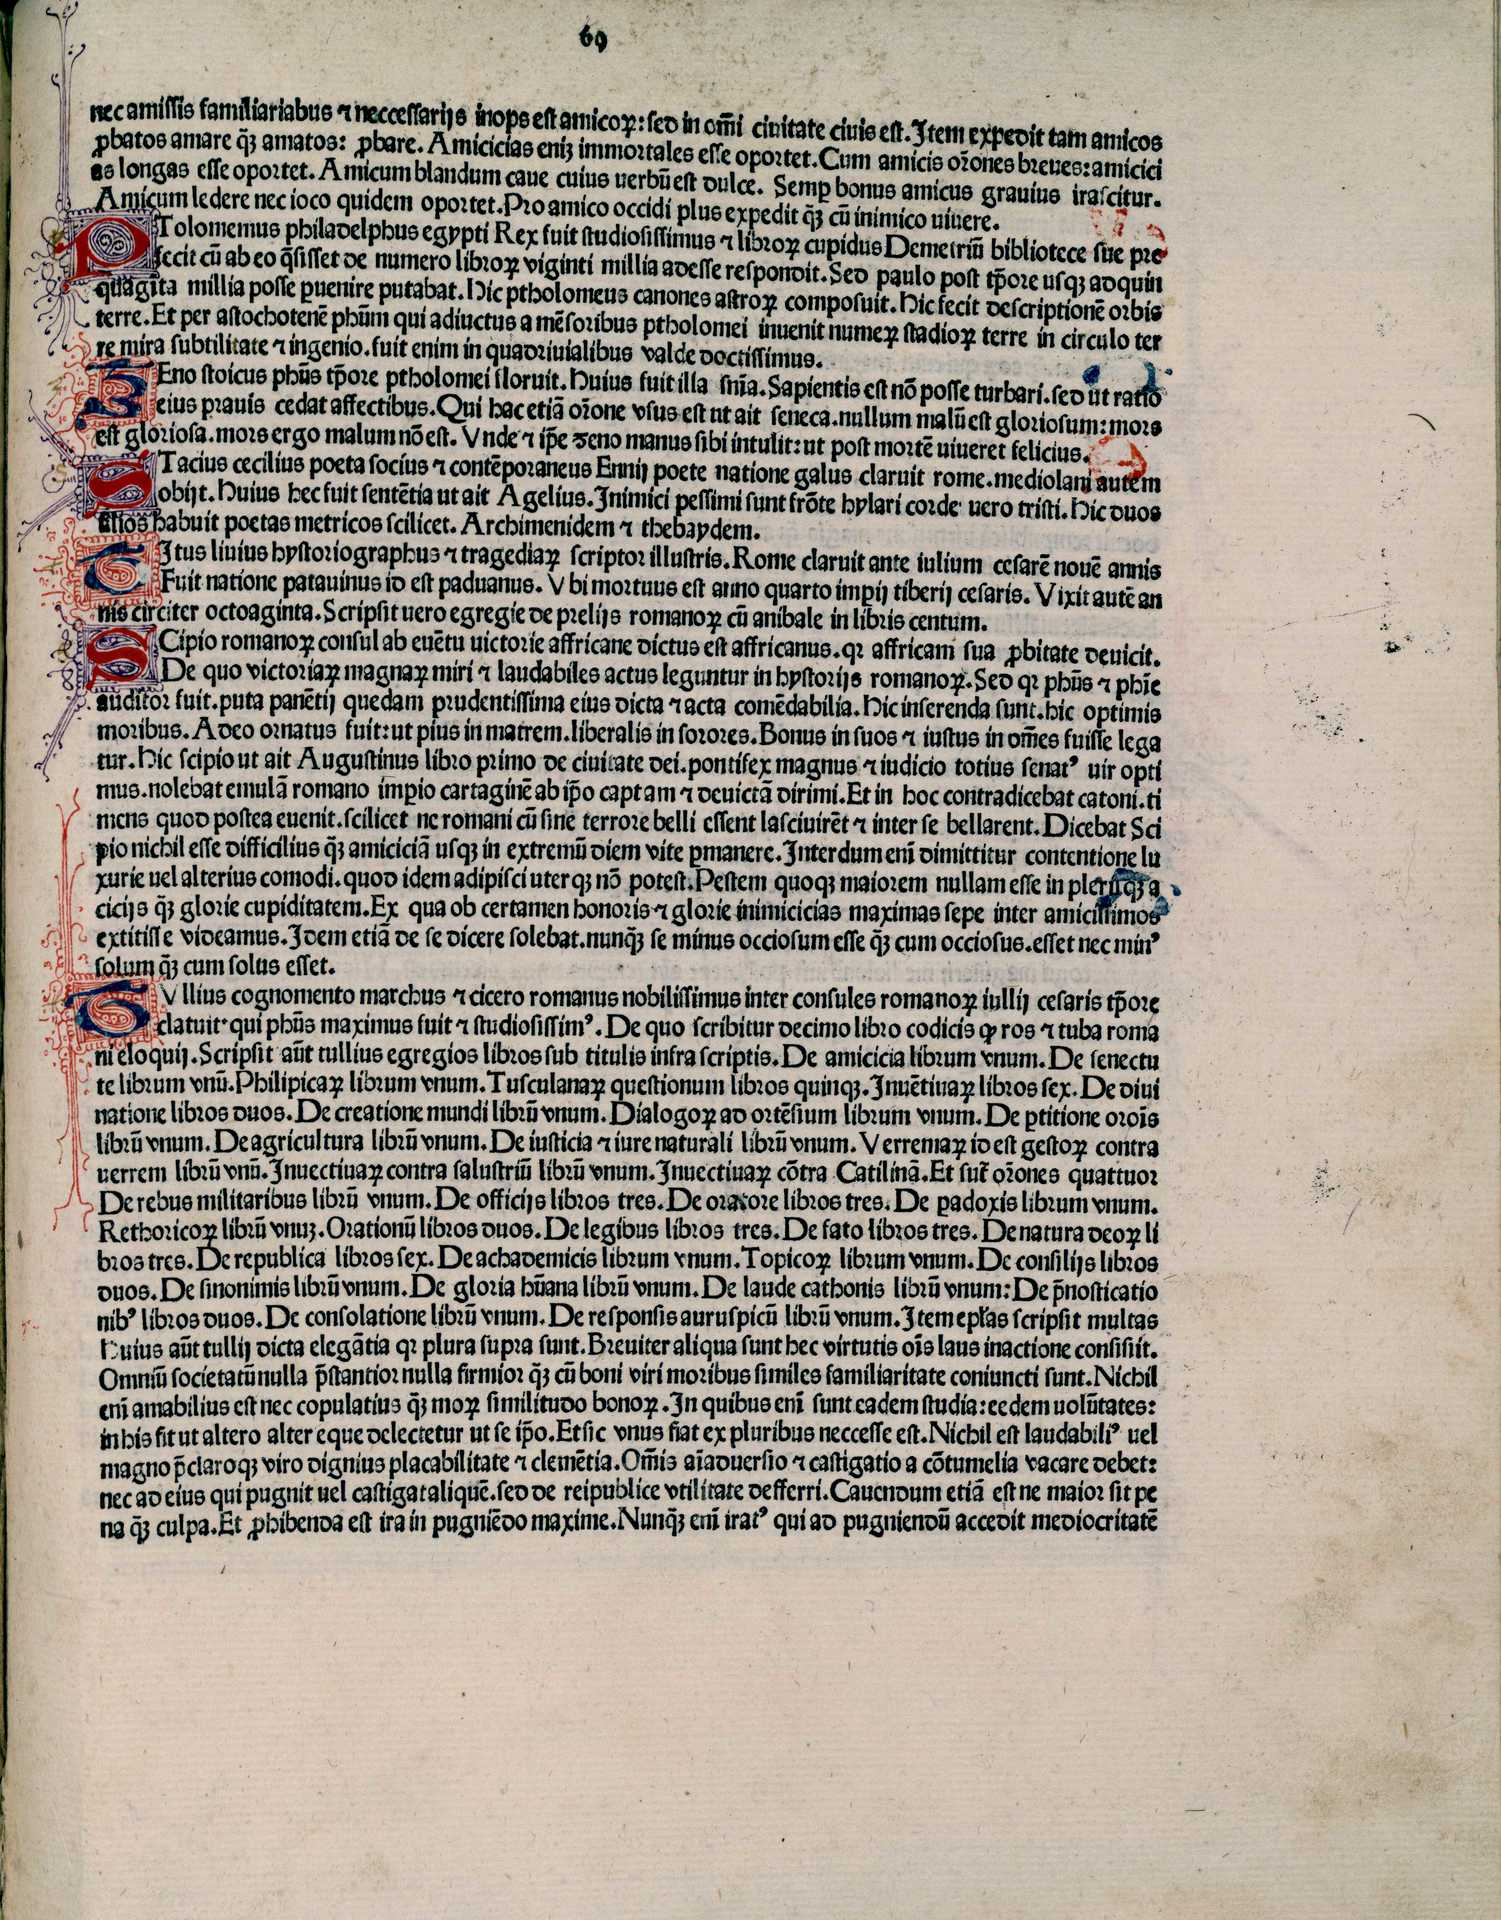 69
nec amissis familiariabus ⁊ neccessarijs inops est amicoꝝ: sed in om̄i ciuitate ciuis est. Item expedit tam amicos
ꝓbatos amare qꝫ̄ amatos: ꝓbare. Amicicias eniꝫ immortales esse oportet. Cum amicis or̄ones breues: amicici
as longas esse oportet. Amicum blandum caue cuius uerbū est dulce. Semꝑ bonus amicus grauius irascitur.
Amicum ledere nec ioco quidem oportet. Pro amico occidi plus expedit qꝫ̄ cū inimico uiuere.
PTolomemus philadelphus egypti Rex fuit studiosissimus ⁊ libroꝝ cupidus Demetriū bibliotece sue pre
fecit cū ab eo q̄sisset de numero libroꝝ viginti millia adesse respondit. Sed paulo post tp̄ore usqꝫ ad quin
quagīta millia posse ꝑuenire putabat. Hic ptholomeus canones astroꝝ composuit. Hic fecit descriptionē orbis
terre. Et per astochotenē phūm qui adiuctus a mēsoribus ptholomei inuenit numeꝝ stadioꝝ terre in circulo ter
re mira subtilitate ⁊ ingenio. fuit enim in quadriuialibus valde doctissimus.
ZEno stoicus phūs tp̄ore ptholomei floruit. Huius fuit illa sn̄ia. Sapientis est nō posse turbari. sed ut ratio
eius prauis cedat affectibus. Qui hac etiā or̄one vsus est ut ait seneca. nullum malū est gloriosum: mors
est gloriosa. mors ergo malum nō est. Vnde ⁊ ip̄e zeno manus sibi intulit: ut post mortē uiueret felicius.
STacius cecilius poeta socius ⁊ contēporaneus Ennij poete natione galus claruit rome. mediolani autem
obijt. Huius hec fuit sentētia ut ait Agelius. Inimici pessimi sunt frōte hylari corde uero tristi. Hic duos
filios habuit poetas metricos scilicet. Archimenidem ⁊ thebaydem.
TItus liuius hystoriographus ⁊ tragediaꝝ scriptor illustris. Rome claruit ante iulium cesarē nouē annis
Fuit natione patauinus id est paduanus. Vbi mortuus est anno quarto imꝑij tiberij cesaris. Vixit autē an
nis circiter octoaginta. Scripsit uero egregie de prelijs romanoꝝ cū anibale in libris centum.
SCipio romanoꝝ consul ab euētu uictorie affricane dictus est affricanus. qr affricam sua ꝓbitate deuicit.
De quo victoriaꝝ magnaꝝ miri ⁊ laudabiles actus leguntur in hystorijs romanoꝝ. Sed qr phūs ⁊ phīe
auditor fuit. puta panētij quedam prudentissima eius dicta ⁊ acta comēdabilia. Hic inserenda sunt. hic optimis
moribus. Adeo ornatus fuit: ut pius in matrem. liberalis in sorores. Bonus in suos ⁊ iustus in om̄es fuisse lega
tur. Hic scipio ut ait Augustinus libro primo de ciuitate dei. pontifex magnus ⁊ iudicio totius senatꝰ uir opti
mus. nolebat emulā romano imꝑio cartaginē ab ip̄o captam ⁊ deuictā dirimi. Et in hoc contradicebat catoni. ti
mens quod postea euenit. scilicet ne romani cū sine terrore belli essent lasciuirēt ⁊ inter se bellarent. Dicebat Sci
pio nichil esse difficilius qꝫ̄ amiciciā usqꝫ in extremū diem vite ꝑmanere. Interdum enī dimittitur contentione lu
xurie uel alterius comodi. quod idem adipisci uterqꝫ nō potest. Pestem quoqꝫ maiorem nullam esse in plerisqꝫ a
cicijs qꝫ̄ glorie cupiditatem. Ex qua ob certamen honoris ⁊ glorie inimicicias maximas sepe inter amicissimos
extitisse videamus. Idem etiā de se dicere solebat. nunqꝫ̄ se minus occiosum esse qꝫ̄ cum occiosus. esset nec minꝰ
solum qꝫ̄ cum solus esset.
TVllius cognomento marchus ⁊ cicero romanus nobilissimus inter consules romanoꝝ iullij cesaris tp̄ore
clatuit. qui phūs maximus fuit ⁊ studiosissimꝰ. De quo scribitur decimo libro codicis ꝙ ros ⁊ tuba roma
ni eloquij. Scripsit aūt tullius egregios libros sub titulis infra scriptis. De amicicia librum vnum. De senectu
te librum vnū. Philipicaꝝ librum vnum. Tusculanaꝝ questionum libros quinqꝫ. Inuētiuaꝝ libros sex. De diui
natione libros duos. De creatione mundi librū vnum. Dialogoꝝ ad ortēsium librum vnum. De ꝑtitione oroīs
librū vnum. De agricultura librū vnum. De iusticia ⁊ iure naturali librū vnum. Verremaꝝ id est gestoꝝ contra
uerrem librū vnū. Inuectiuaꝝ contra salustriū librū vnum. Inuectiuaꝝ cōtra Catilinā. Et sūt or̄ones quattuor
De rebus militaribus librū vnum. De officijs libros tres. De oratore libros tres. De ꝑadoxis librum vnum.
Rethoricoꝝ librū vnuꝫ. Orationū libros duos. De legibus libros tres. De fato libros tres. De natura deoꝝ li
bros tres. De republica libros sex. De achademicis librum vnum. Topicoꝝ librum vnum. De consilijs libros
duos. De sinonimis librū vnum. De gloria hūana librū vnum. De laude cathonis librū vnum: De p̄nosticatio
nibꝰ libros duos. De consolatione librū vnum. De responsis auruspicū librū vnum. Item epl̄as scripsit multas
Huius aūt tullij dicta elegātia qr plura supra sunt. Breuiter aliqua sunt hec virtutis oīs laus inactione consisiit.
Omniū societatū nulla p̄stantior nulla firmior qꝫ̄ cū boni viri moribus similes familiaritate coniuncti sunt. Nichil
enī amabilius est nec copulatius qꝫ̄ moꝝ similitudo bonoꝝ. In quibus enī sunt eadem studia: eedem uolūtates:
in his fit ut altero alter eque delectetur ut se ip̄o. Et sic vnus fiat ex pluribus neccesse est. Nichil est laudabiliꝰ uel
magno p̄claroqꝫ viro dignius placabilitate ⁊ clemētia. Om̄is aīaduersio ⁊ castigatio a cōtumelia vacare debet:
nec ad eius qui pugnit uel castigat aliquē. sed de reipublice vtilitate defferri. Cauendum etiā est ne maior sit pe
na qꝫ̄ culpa. Et ꝓhibenda est ira in pugniēdo maxime. Nunqꝫ̄ enī iratꝰ qui ad pugniendū accedit mediocritatē